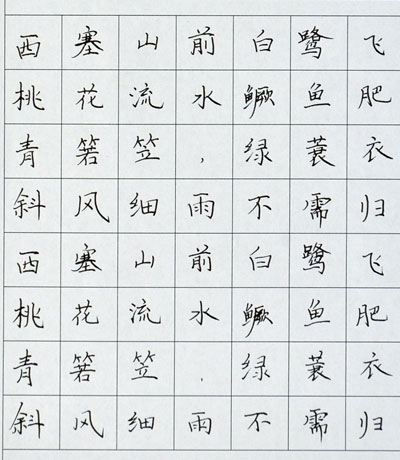 西塞山前白鹭飞
桃花流水鳜鱼肥
青箬笠，绿蓑衣
斜风细雨不需归
西塞山前白鹭飞
桃花流水鳜鱼肥
青箬笠，绿蓑衣
斜风细雨不需归